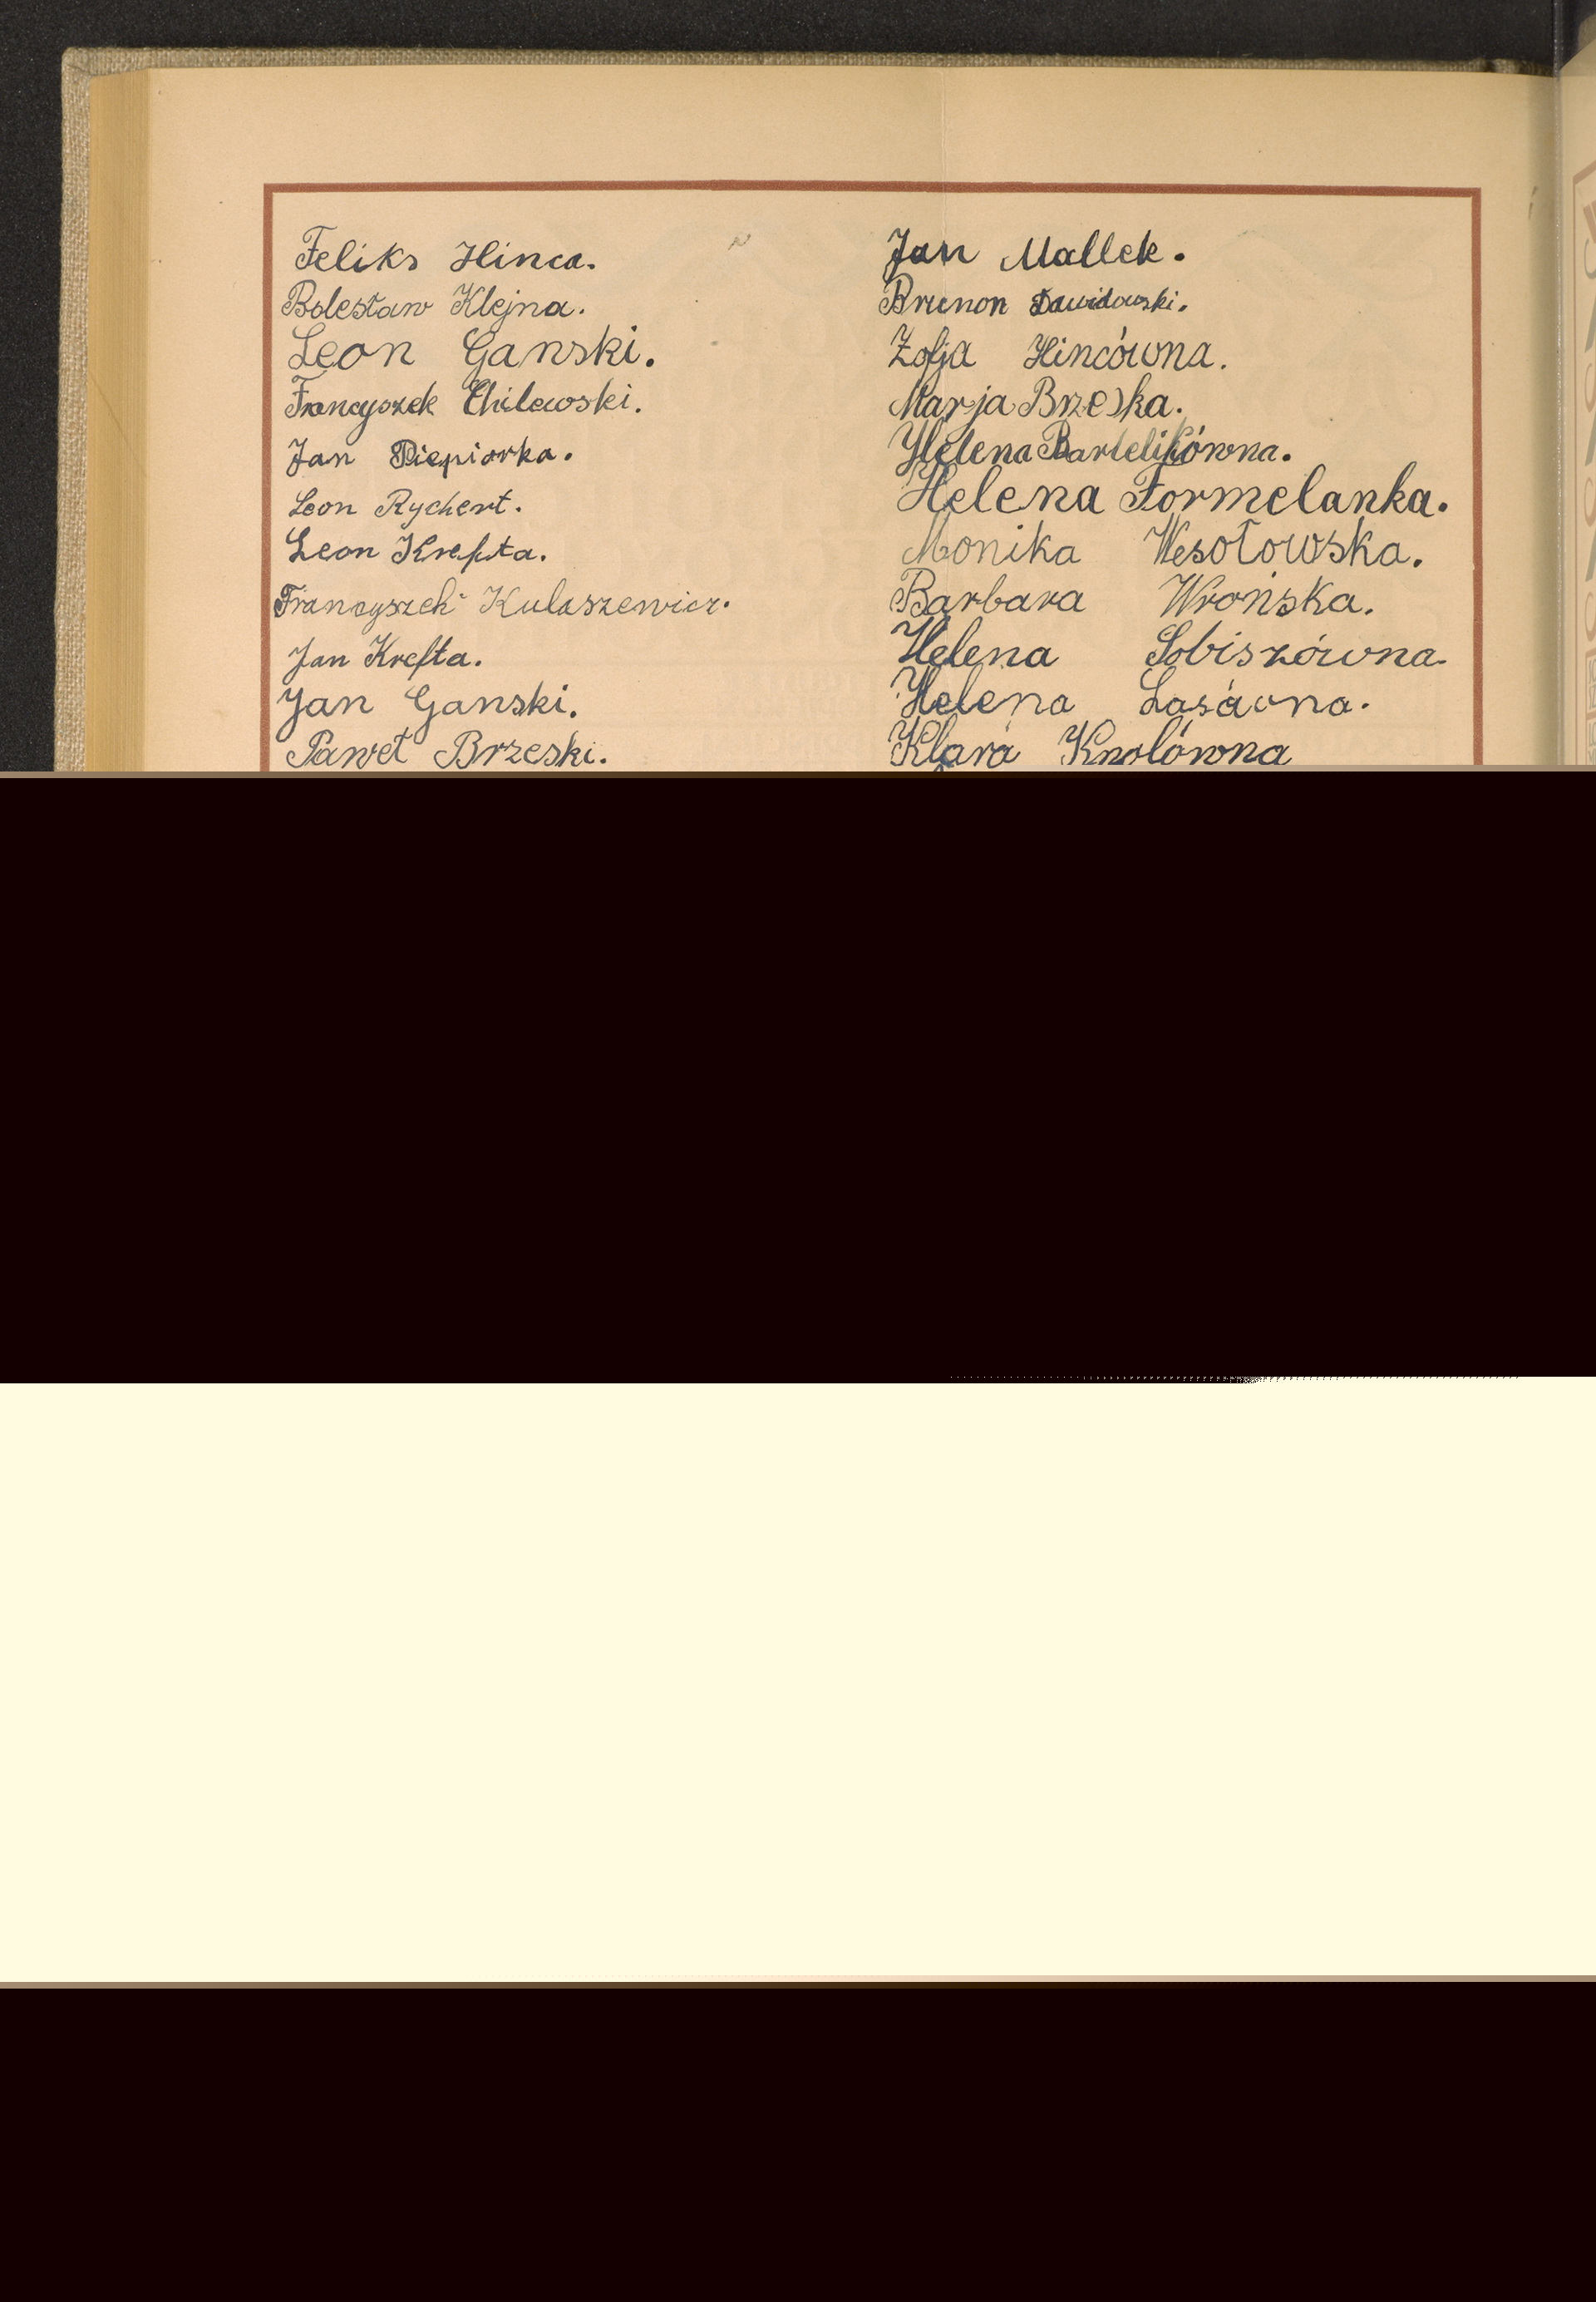 Feliks Hinca.
Bolesław Klejna.
Leon Ganski.
Francyszek Chilewski.
Jan Piepiorka.
Leon Rychert.
Leon Krefta.
Francyszek Kulaszewicz.
Jan Krefta.
Jan Ganski.
Paweł Brzeski.
Jan Mallek.
Brunon Dawidowski.
Zofja Hincówna.
Marja Brzeska.
Helena Bartelikówna.
Helena Formelanka.
Monika Wesołowska.
Barbara Wrońska.
Helena Sobiszówna.
Helena
Klara Knolówna